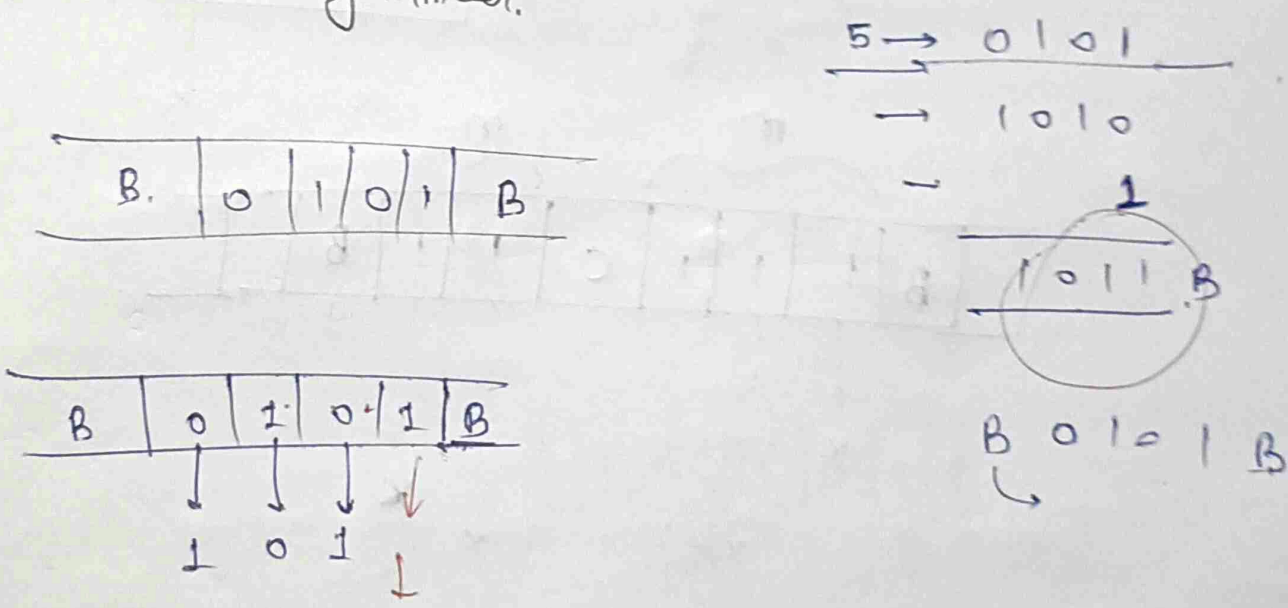 5 → 0 1 0 1
→ 1 0 1 0
- 1
1 0 1 1 B
B. 0 1 0 1 B
B 0 1 0 1 B
1 0 1 1
B 0 1 0 1 B